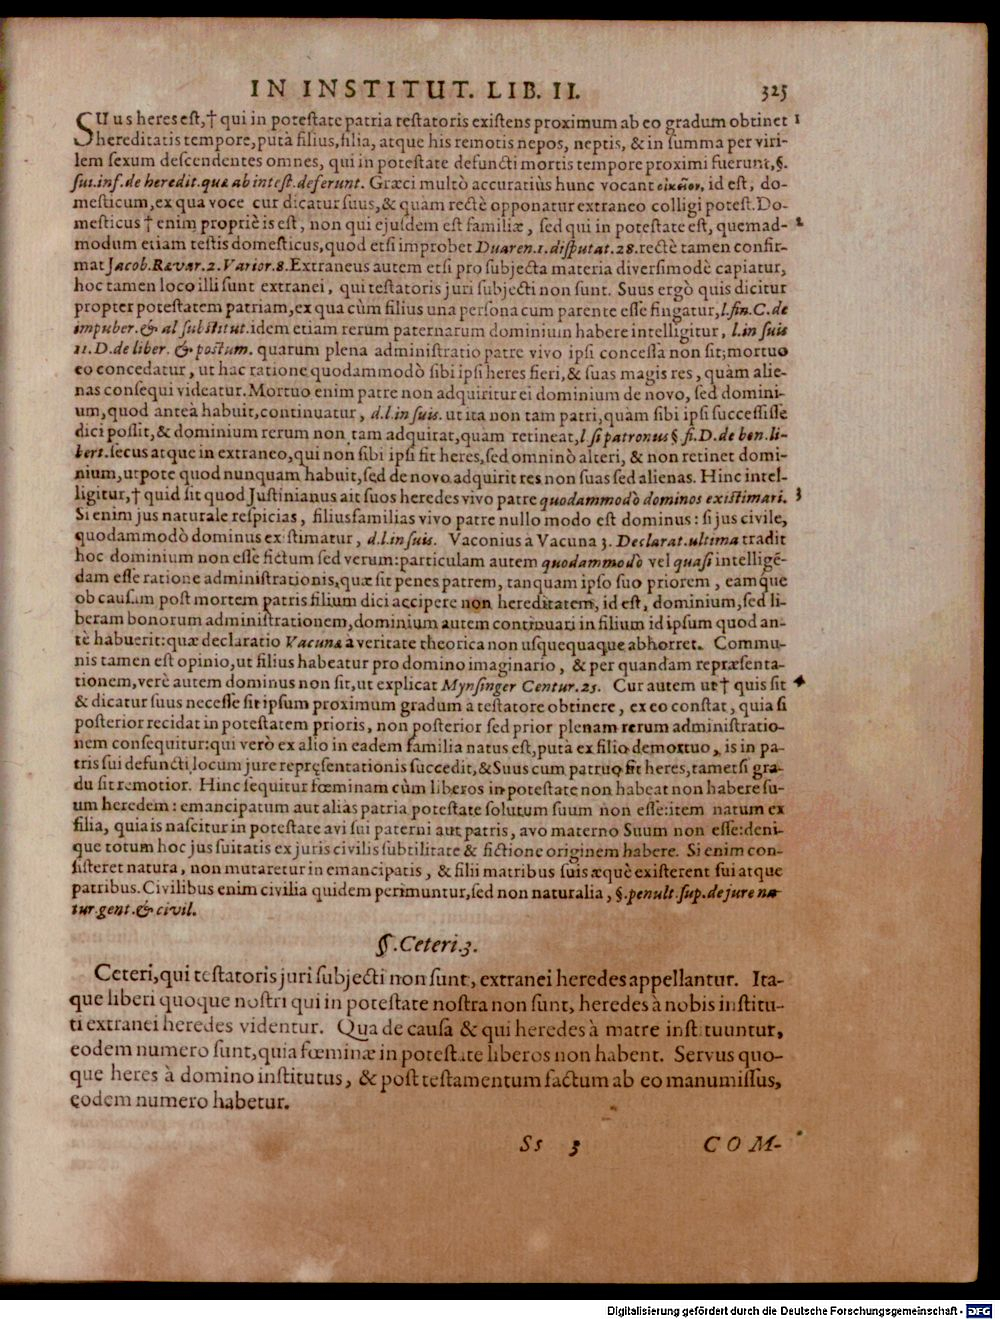 IN INSTITUT. LIB. II. 325
SUus heres est,† qui in potestate patria testatoris existens proximum ab eo gradum obtinet 1
hereditatis tempore, putà filius, filia, atque his remotis nepos, neptis, & in summa per viri-
lem sexum descendentes omnes, qui in potestate defuncti mortis tempore proximi fuerunt, §.
sui. inf. de heredit. quæ ab intest. deferunt. Græci multò accuratiùs hunc vocant οἰκεῖον, id est, do-
mesticum, ex qua voce cur dicatur suus, & quàm rectè opponatur extraneo colligi potest. Do-
mesticus † enim propriè is est, non qui ejusdem est familiæ, sed qui in potestate est, quemad- 2
modum etiam testis domesticus, quod etsi improbet Duaren. 1. disputat. 28. rectè tamen confir-
mat Jacob. Rævar. 2. Varior. 8. Extraneus autem etsi pro subjecta materia diversimodè capiatur,
hoc tamen loco illi sunt extranei, qui testatoris juri subjecti non sunt. Suus ergò quis dicitur
propter potestatem patriam, ex qua cùm filius una persona cum parente esse fingatur, l. fin. C. de
impuber. & al substitut. idem etiam rerum paternarum dominium habere intelligitur, l. in suis
11. D. de liber. & postum. quarum plena administratio patre vivo ipsi concessa non sit; mortuo
eo concedatur, ut hac ratione quodammodò sibi ipsi heres fieri, & suas magis res, quàm alie-
nas consequi videatur. Mortuo enim patre non adquiritur ei dominium de novo, sed domini-
um, quod anteà habuit, continuatur, d. l. in suis. ut ita non tam patri, quàm sibi ipsi successisse
dici possit, & dominium rerum non tam adquirat, quàm retineat, l. si patronus § fi. D. de bon. li-
bert. secus atque in extraneo, qui non sibi ipsi fit heres, sed omninò alteri, & non retinet domi-
nium, utpote quod nunquam habuit, sed de novo adquirit res non suas sed alienas. Hinc intel-
ligitur,† quid sit quod Justinianus ait suos heredes vivo patre quodammodò dominos existimari. 3
Si enim jus naturale respicias, filiusfamilias vivo patre nullo modo est dominus: si jus civile,
quodammodò dominus existimatur, d. l. in suis. Vaconius à Vacuna 3. Declarat. ultima tradit
hoc dominium non esse fictum sed verum: particulam autem quodammodò vel quasi intelligē-
dam esse ratione administrationis, quæ sit penes patrem, tanquam ipso suo priorem, eamque
ob causam post mortem patris filium dici accipere non hereditatem, id est, dominium, sed li-
beram bonorum administrationem, dominium autem continuari in filium id ipsum quod an-
tè habuerit: quæ declaratio Vacunæ à veritate theorica non usquequaque abhorret. Commu-
nis tamen est opinio, ut filius habeatur pro domino imaginario, & per quandam repræsenta-
tionem, verè autem dominus non sit, ut explicat Mynsinger Centur. 25. Cur autem ut † quis sit 4
& dicatur suus necesse sit ipsum proximum gradum à testatore obtinere, ex eo constat, quia si
posterior recidat in potestatem prioris, non posterior sed prior plenam rerum administratio-
nem consequitur: qui verò ex alio in eadem familia natus est, putà ex filio demortuo, is in pa-
tris sui defuncti locum jure representationis succedit, & Suus cum patruo fit heres, tametsi gra-
du sit remotior. Hinc sequitur fœminam cùm liberos in potestate non habeat non habere su-
um heredem: emancipatum aut aliàs patria potestate solutum suum non esse: item natum ex
filia, quia is nascitur in potestate avi sui paterni aut patris, avo materno Suum non esse: deni-
que totum hoc jus suitatis ex juris civilis subtilitate & fictione originem habere. Si enim con-
sisteret natura, non mutaretur in emancipatis, & filii matribus suis æquè existerent sui atque
patribus. Civilibus enim civilia quidem perimuntur, sed non naturalia, §. penult. sup. de jure na-
tur. gent. & civil.
§. Ceteri. 3.
Ceteri, qui testatoris juri subjecti non sunt, extranei heredes appellantur. Ita-
que liberi quoque nostri qui in potestate nostra non sunt, heredes à nobis institu-
ti extranei heredes videntur. Qua de causa & qui heredes à matre instituuntur,
eodem numero sunt, quia fœminæ in potestate liberos non habent. Servus quo-
que heres à domino institutus, & post testamentum factum ab eo manumissus,
eodem numero habetur.
Ss 3 COM-
Digitalisierung gefördert durch die Deutsche Forschungsgemeinschaft - DFG